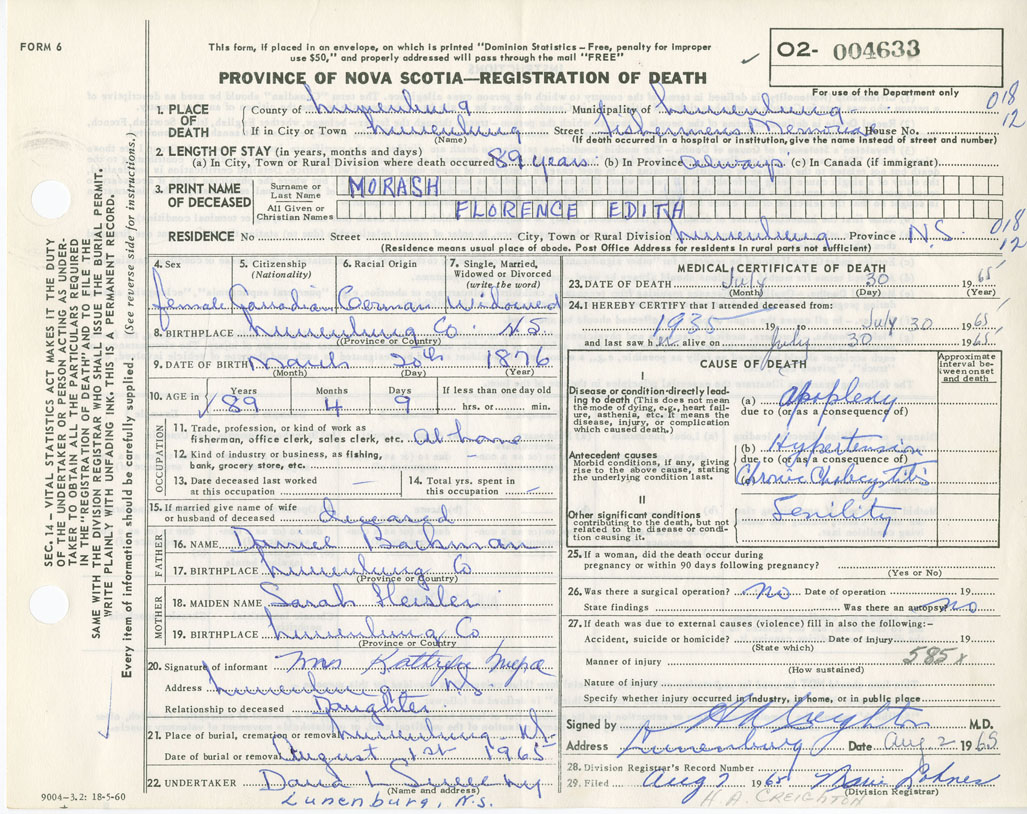 FORM 6
This form, if placed in an envelope, on which is printed "Dominion Statistics – Free, penalty for improper
use $50," and properly addressed will pass through the mail "FREE"
PROVINCE OF NOVA SCOTIA—REGISTRATION OF DEATH
02- 004633
For use of the Department only
SEC. 14 – VITAL STATISTICS ACT MAKES IT THE DUTY
OF THE UNDERTAKER OR PERSON ACTING AS UNDER-
TAKER TO OBTAIN ALL THE PARTICULARS REQUIRED
IN THE "REGISTRATION OF DEATH" AND TO FILE THE
SAME WITH THE DIVISION REGISTRAR WHO SHALL ISSUE THE BURIAL PERMIT.
WRITE PLAINLY WITH UNFADING INK. THIS IS A PERMANENT RECORD.
Every item of information should be carefully supplied. (See reverse side for instructions.)
1. PLACE OF DEATH County of Lunenburg Municipality of Lunenburg 018
If in City or Town Lunenburg Street Fishermens Memorial House No. 12
(Name) (If death occurred in a hospital or institution, give the name instead of street and number)
2. LENGTH OF STAY (in years, months and days)
(a) In City, Town or Rural Division where death occurred 89 years (b) In Province always (c) In Canada (if immigrant)
3. PRINT NAME OF DECEASED Surname or Last Name MORASH
All Given or Christian Names FLORENCE EDITH
RESIDENCE No Street City, Town or Rural Division Lunenburg Province N.S. 018 12
(Residence means usual place of abode. Post Office Address for residents in rural parts not sufficient)
4. Sex 5. Citizenship (Nationality) 6. Racial Origin 7. Single, Married, Widowed or Divorced (write the word)
female Canadian German Widowed
8. BIRTHPLACE Lunenburg Co. N.S.
(Province or Country)
9. DATE OF BIRTH March 20th 1876
(Month) (Day) (Year)
10. AGE in Years Months Days If less than one day old
89 4 9 hrs. or min.
OCCUPATION
11. Trade, profession, or kind of work as
fisherman, office clerk, sales clerk, etc. At home
12. Kind of industry or business, as fishing,
bank, grocery store, etc. –
13. Date deceased last worked at this occupation – 14. Total yrs. spent in this occupation –
15. If married give name of wife
or husband of deceased deceased
FATHER
16. NAME Daniel Backman
17. BIRTHPLACE Lunenburg Co
(Province or Country)
MOTHER
18. MAIDEN NAME Sarah Heisler
19. BIRTHPLACE Lunenburg Co
(Province or Country
20. Signature of informant Mrs
Address Lunenburg NS
Relationship to deceased Daughter
21. Place of burial, cremation or removal Lunenburg NS
Date of burial or removal August 1st 1965
22. UNDERTAKER
(Name and address)
Lunenburg, N.S.
9004-3.2: 18-5-60
MEDICAL CERTIFICATE OF DEATH
23. DATE OF DEATH July 30 1965
(Month) (Day) (Year)
24. I HEREBY CERTIFY that I attended deceased from:
1935 19 to July 30 1965
and last saw her alive on July 30 1965
CAUSE OF DEATH
Approximate interval between onset and death
I
Disease or condition directly leading to death (This does not mean the mode of dying, e.g., heart failure, asthenia, etc. It means the disease, injury, or complication which caused death.)
(a) apoplexy
due to (or as a consequence of)
Antecedent causes
Morbid conditions, if any, giving rise to the above cause, stating the underlying condition last.
(b) Hypertension
due to (or as a consequence of)
(c) Chronic Cholecystitis
II
Other significant conditions
contributing to the death, but not related to the disease or condition causing it.
Senility
25. If a woman, did the death occur during
pregnancy or within 90 days following pregnancy?
(Yes or No)
26. Was there a surgical operation? No Date of operation 19
State findings Was there an autopsy? No
27. If death was due to external causes (violence) fill in also the following:-
Accident, suicide or homicide? Date of injury 19
(State which)
Manner of injury 585x
(How sustained)
Nature of injury
Specify whether injury occurred in industry, in home, or in public place
Signed by H A Creighton M.D.
Address Lunenburg Date Aug 2 1965
28. Division Registrar's Record Number
29. Filed Aug 2 1965
(Division Registrar)
H A CREIGHTON